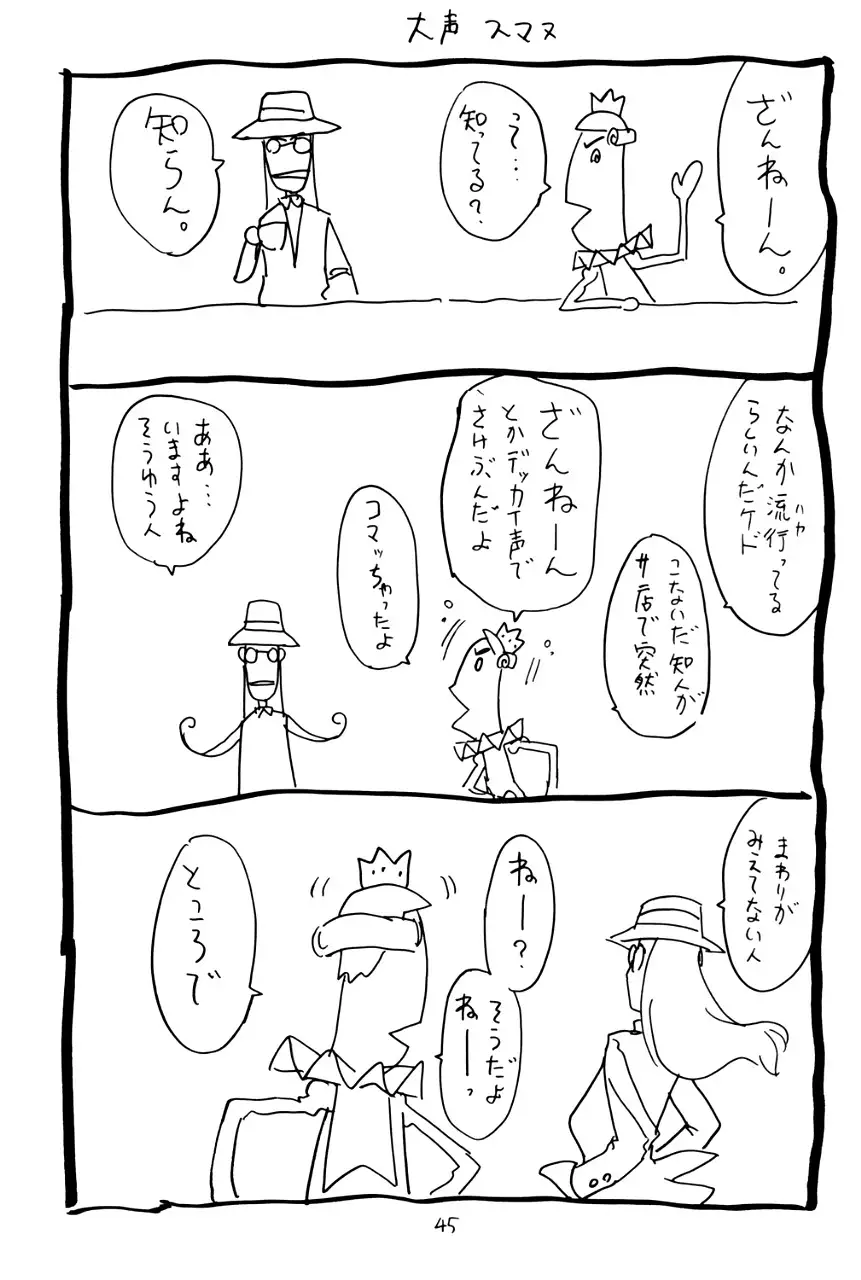 大声 スマヌ
ざんねーん。
って…
知ってる?
知らん。
なんか流行ってる
ハヤ
らしいんだケド
こないだ 知人が
サ店で突然
ざんねーん
とかデッカイ声で
さけぶんだよ
コマッちゃったよ
ああ…
いますよね
そうゆう人
まわりが
みえてない人
ねー?
そうだよ
ねーっ
ところで
45